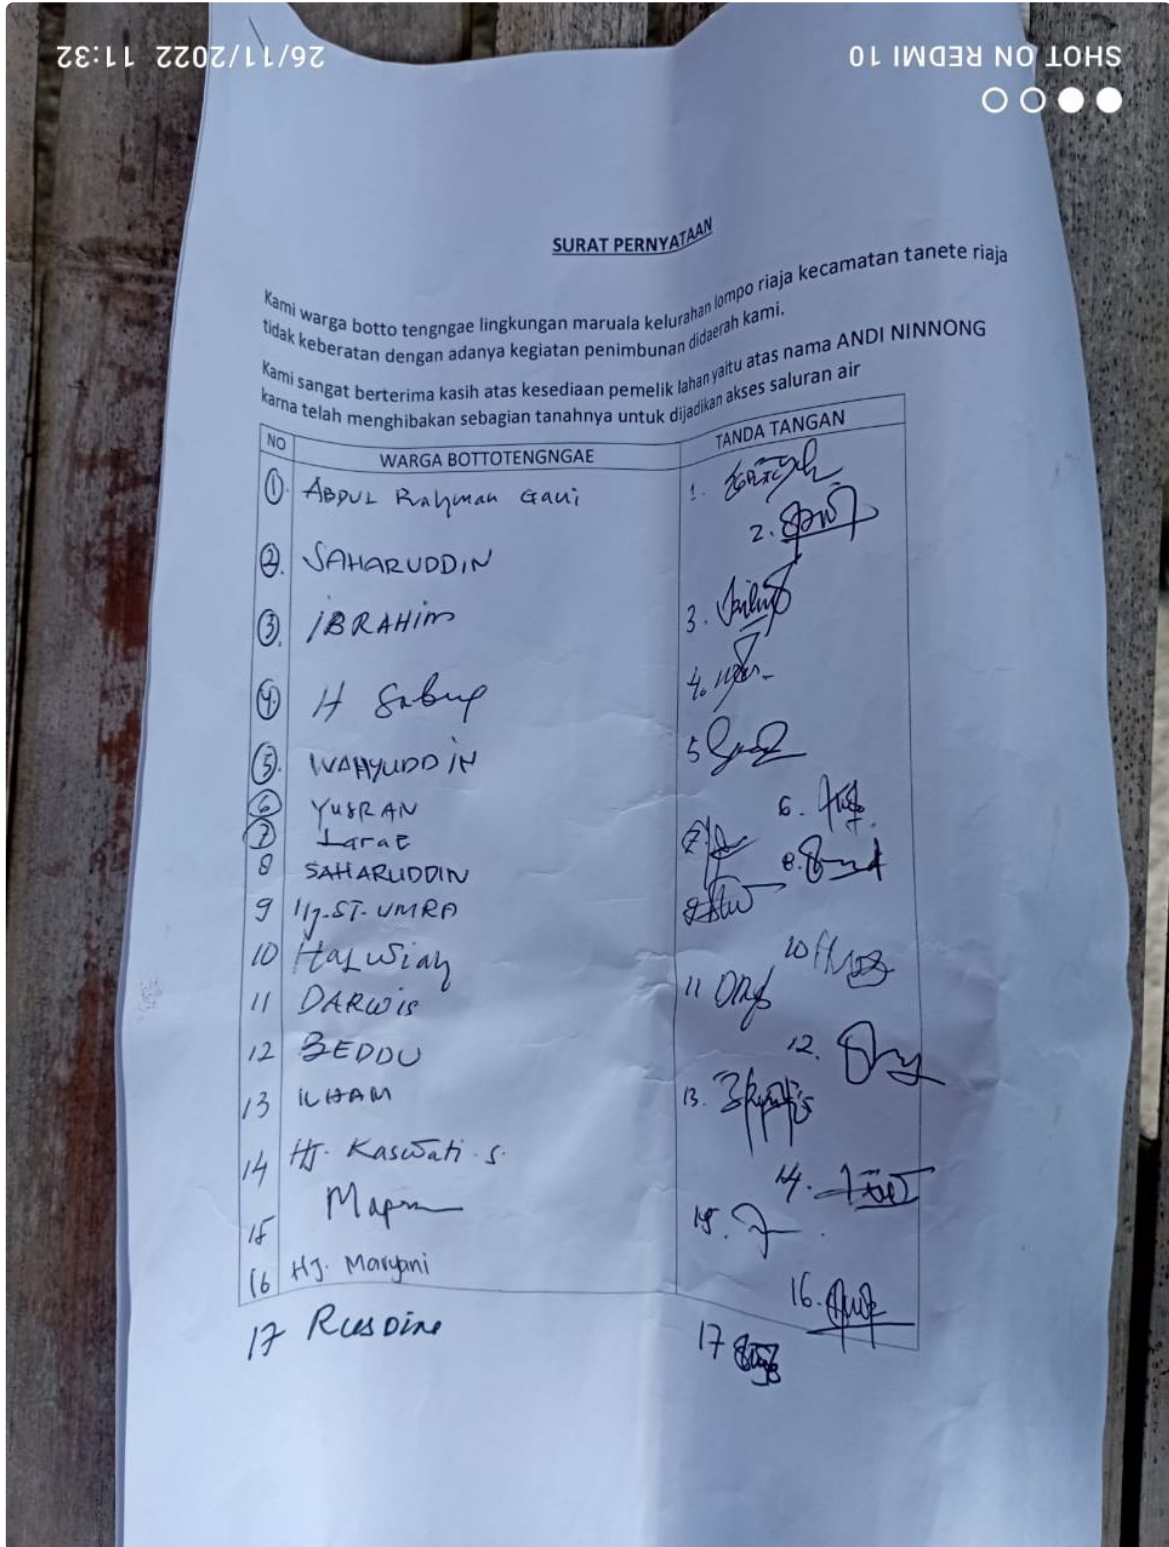 26/11/2022 11:32
SHOT ON REDMI 10
SURAT PERNYATAAN
Kami warga botto tengngae lingkungan maruala kelurahan lompo riaja kecamatan tanete riaja
tidak keberatan dengan adanya kegiatan penimbunan didaerah kami.
Kami sangat berterima kasih atas kesediaan pemelik lahan yaitu atas nama ANDI NINNONG
karna telah menghibakan sebagian tanahnya untuk dijadikan akses saluran air
NO WARGA BOTTOTENGNGAE TANDA TANGAN
1. ABDUL Rahman Gani 1.
2. SAHARUDDIN 2.
3. IBRAHIM 3.
4. H 4.
5. WAHYUDDIN 5
6 YUSRAN 6.
7 7
8 SAHARUDDIN 8.
9 Hj. ST. UMRA 9
10 10
11 DARWIS 11
12 BEDDU 12.
13 ILHAM 13.
14 Hj. Kaswati. S. 14.
15 15.
16 Hj. Maryani 16.
17 17